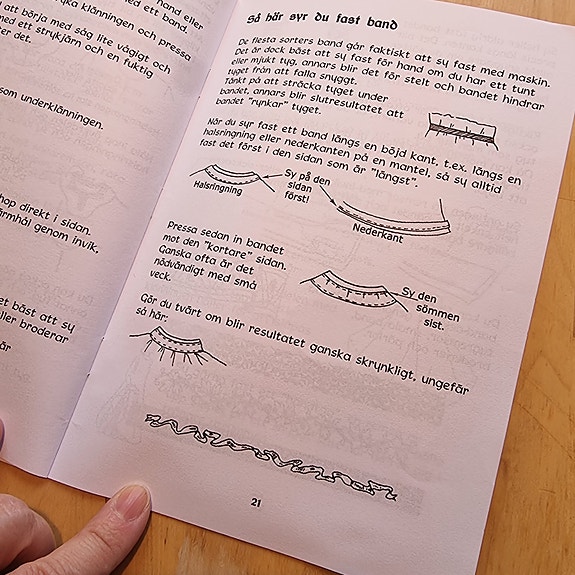 hand eller
ryka klänningen och pressa
med ett band.
att börja med såg lite vågigt och
med ett strykjärn och en fuktig
ter det.
som underklänningen.
hop direkt i sidan.
ärmhål genom invik,
et bäst att sy
eller broderar
är
Så här syr du fast band
De flesta sorters band går faktiskt att sy fast med maskin.
Det är dock bäst att sy fast för hand om du har ett tunt
eller mjukt tyg, annars blir det för stelt och bandet hindrar
tyget från att falla snyggt.
Tänkt på att sträcka tyget under
bandet, annars blir slutresultatet att
bandet "rynkar" tyget.
När du syr fast ett band längs en böjd kant, t.ex. längs en
halsringning eller nederkanten på en mantel, så sy alltid
fast det först i den sidan som är "längst".
Halsringning
Sy på den
sidan
först!
Nederkant
Pressa sedan in bandet
mot den "kortare" sidan.
Ganska ofta är det
nödvändigt med små
veck.
Sy den
sömmen
sist.
Gör du tvärt om blir resultatet ganska skrynkligt, ungefär
så här:
21